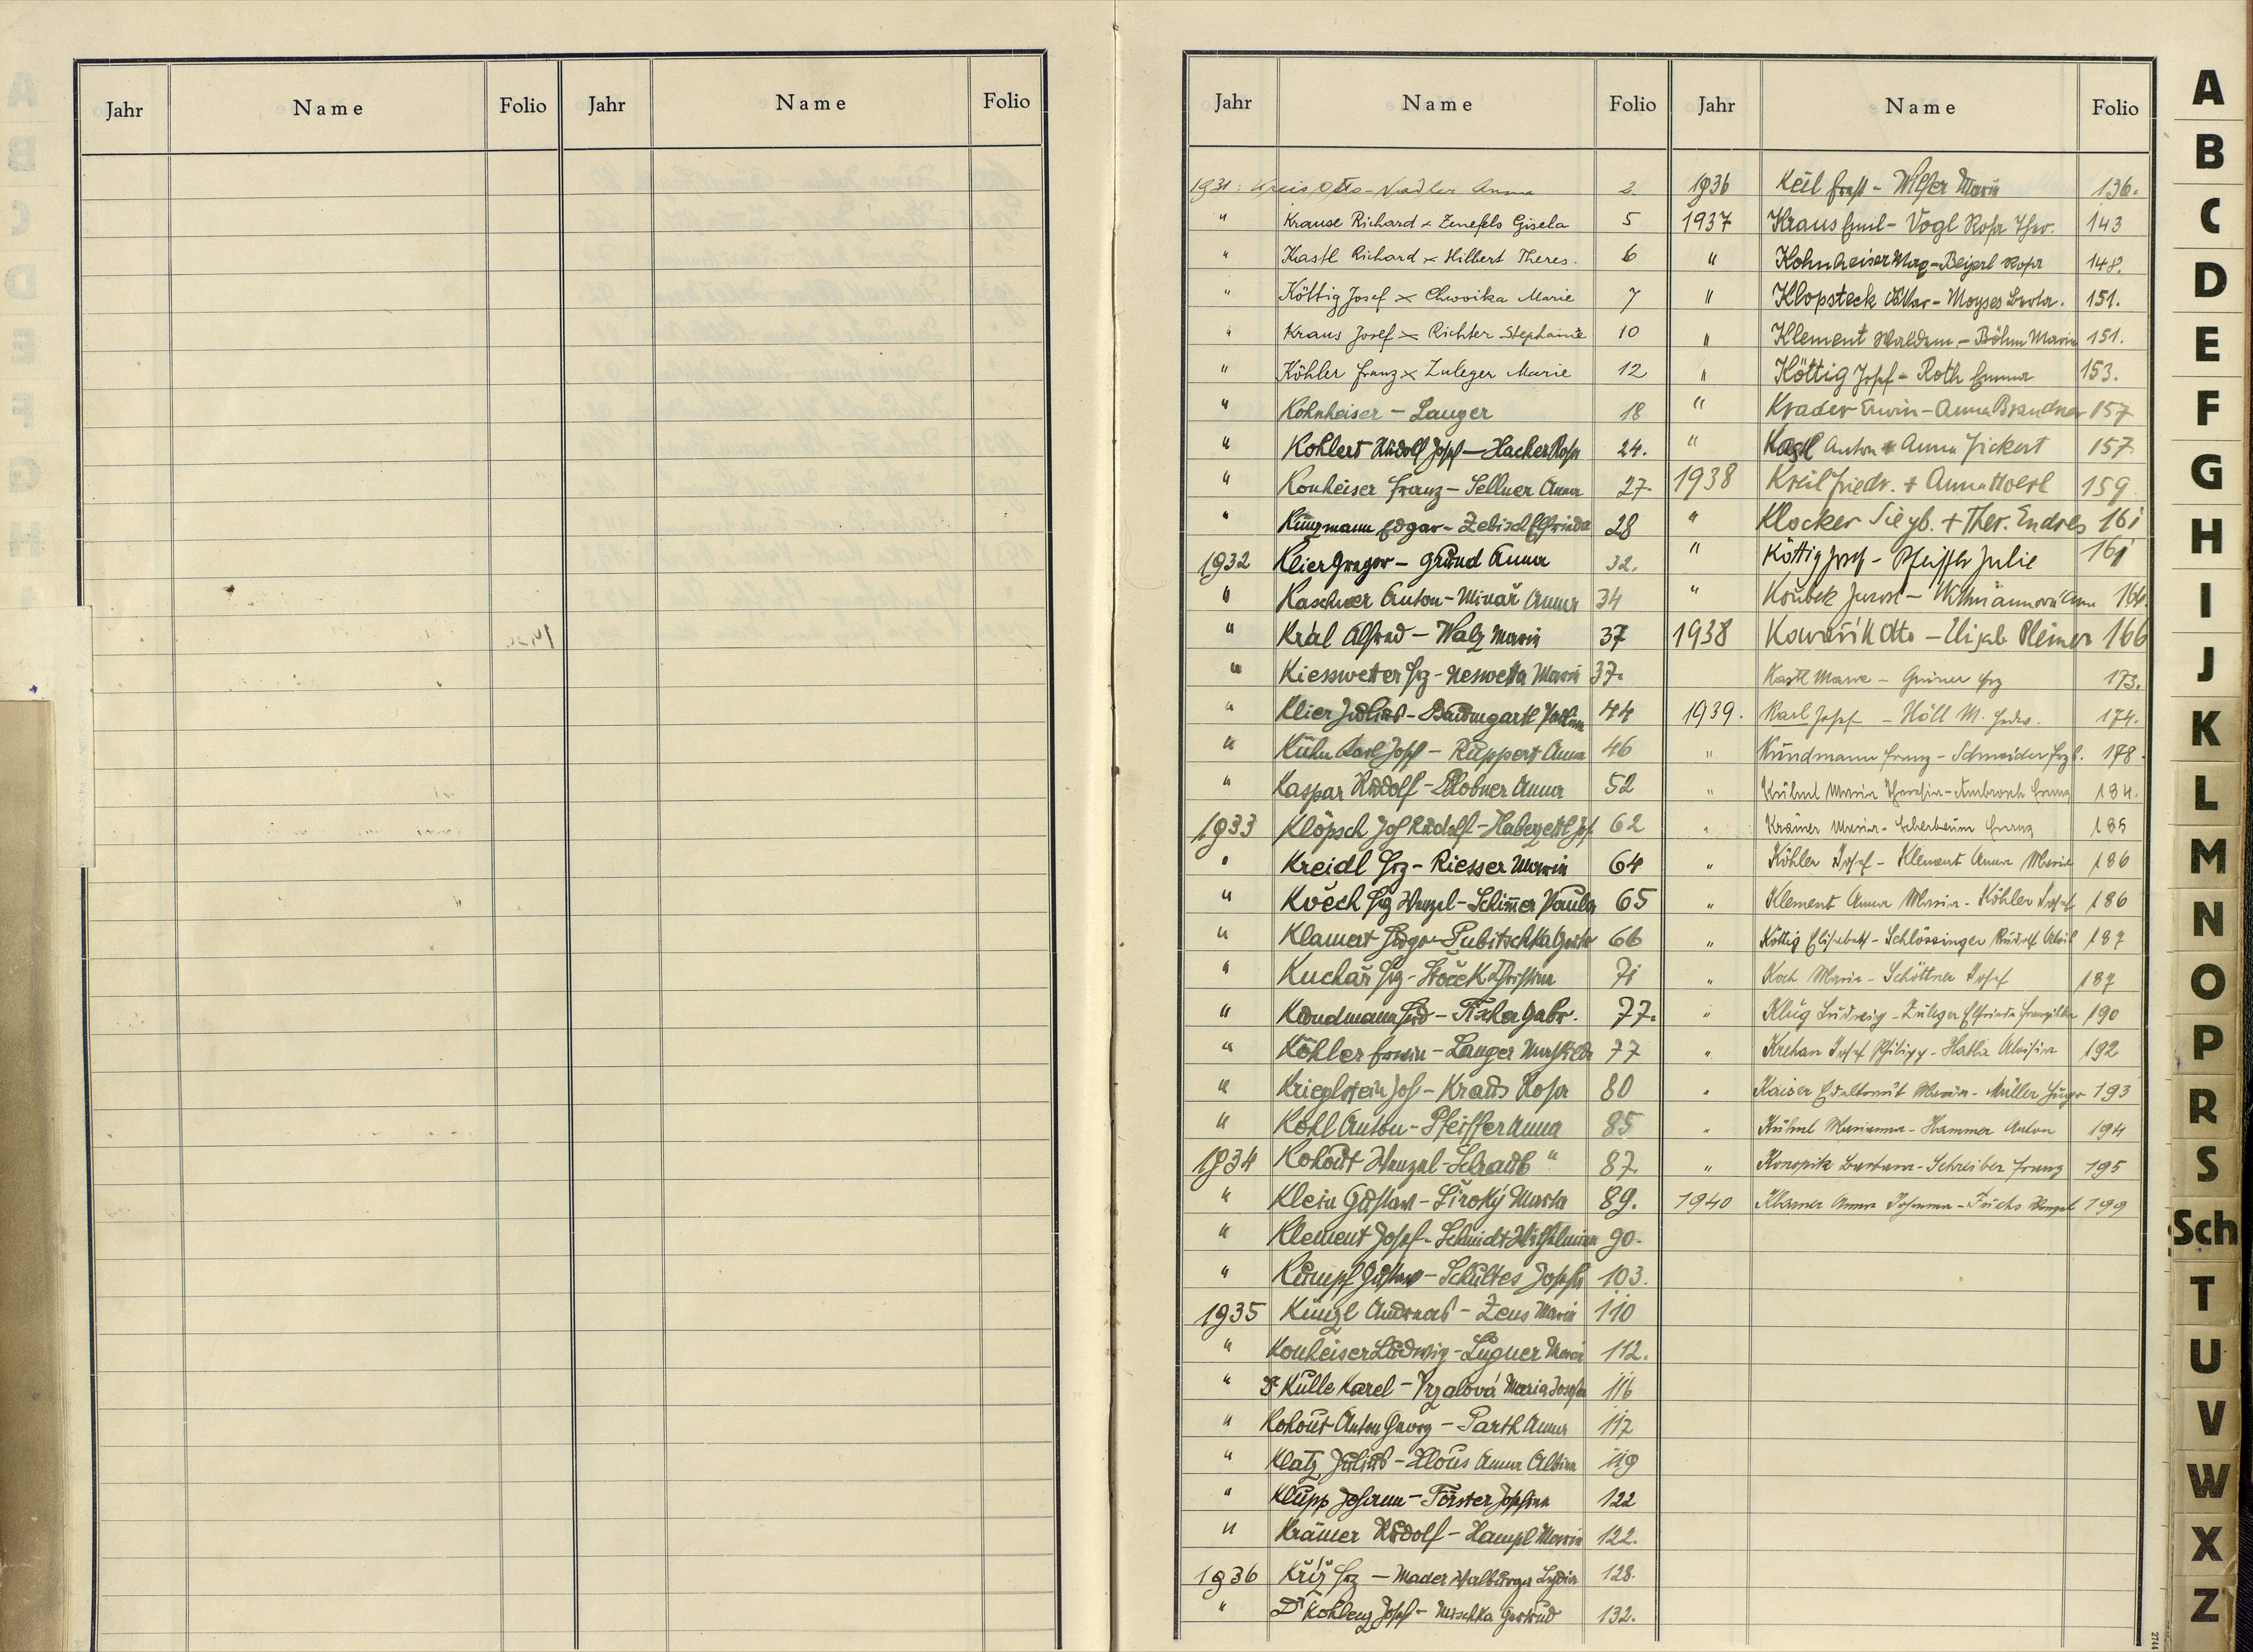 Jahr Name Folio Jahr Name Folio
Jahr Name Folio Jahr Name Folio
1931: Kreis Otto - Nadler Anna 2.
" Krause Richard × Zenefels Gisela 5
" Kastl Richard × Hilbert Theres. 6
" Köttig Josef × Chwoika Marie 7
" Kraus Josef × Richter Stephanie 10
" Köhler Franz × Zuleger Marie 12
" Kohnheiser - Langer 18
" Kohlert Rudolf Josef - Hacker Rosa 24.
" Konheiser Franz - Sellner Anna 27.
" Küngmann Edgar - Zebisch Elfrieda 28
1932 Klier Gregor - Grund Anna 32.
" Kaschner Anton - Minař Anna 34
" Král Alfred - Walz Maria 37
" Kiesswetter Frz - Neswetta Maria 37.
" Klier Julius - Baumgartl 44
" Kühn Karl Josef - Ruppert Anna 46
" Kaspar Rudolf - Klobner Anna 52
1933 Klöpsch Jos Rudolf - Haberzettl Jos. 62
" Kreidl Frz - Riesser Maria 64
" Kvěch Frz Wenzel - Schimer Paula 65
" Klamert - Pubitschka 66
" Kuchař Frz - Stoček Christina 71
" Kundmann Ferd - Fischer Gabr. 77.
" Köhler Erwin - Langer Mathilde 77
" Krieglstein Jos - Kraus Rosa 80
" Kohl Anton - Pfeiffer Anna 85
1934 Kohout Wenzel - Schraub " 87.
" Klein Gustav - Široký Maria 89.
" Klement Josef - Schmidt Wilhelmine 90.
" Kumpf Gustav - Schultes Josefa 103.
1935 Künzl Andreas - Zeus Maria 110
" Konheiser Ludwig - Lugner Maria 112.
" Dr Kulle Karel - Vrzalová Maria Josefa 116
" Kohout Anton Georg - Parth Anna 117
" Klatz Julius - Klous Anna Albina 119
" Klupp Johann - Förster Josefina 122
" Krämer Rudolf - Hampl Maria 122.
1936 Kříž Frz - Mader Walburga Lydia 128.
" Dr Kohlenz Josef - Mrschka Gertrud 132.
1936 Keil Ernst - Wieser Maria 136.
1937 Kraus Emil - Vogl Rosa Ther. 143
" Kohnheiser - Beierl Rosa 148.
" Klopsteck Ottkar - Moyses Berta. 151.
" Klement Waldem. - Böhm Maria 151.
" Köttig Josef - Roth Emma 153.
" Krader Erwin - Anna Brandner 157
" Kastl Anton + Anna Fickert 157
1938 Kreil Friedr. + Anna Hoerl 159
" Klocker Siegb. + Ther. Endres 161
" Köttig Josef - Pfeiffer Julie 161
" Koubek Jarosl - Anna 164.
1938 Kowařik Otto - Elisab Pleiner 166
Kastl Marie - Greiner Frz 173.
1939. Karl Josef - Höll M. Hedw. 174.
" Kundmann Franz - Schneider Frzk. 178.
" Kühnl Maria Theresia - Ambrosch Franz 184.
" Krämer Maria - Scherbaum Franz 185
" Köhler Josef - Klement Anna Maria 186
" Klement Anna Maria - Köhler Josef 186
" Köttig Elisabeth - Schlössinger Rudolf Alois 187
" Koch Maria - Schöttner Josef 187
" Klug Ludwig - Zuleger Elfrieda Franziska 190
" Krehan Josef Philipp - Hatla Aloisia 192
" Kaiser Edeltraut Maria - Müller Hugo 193
" Kühnl Marianna - Hammer Anton 194
" Konopik Barbara - Schreiber Franz 195
1940 Anna Johanna - Fuchs Wenzel 199
A
B
C
D
E
F
G
H
I
J
K
L
M
N
O
P
R
S
Sch
T
U
V
W
X
Z
2744